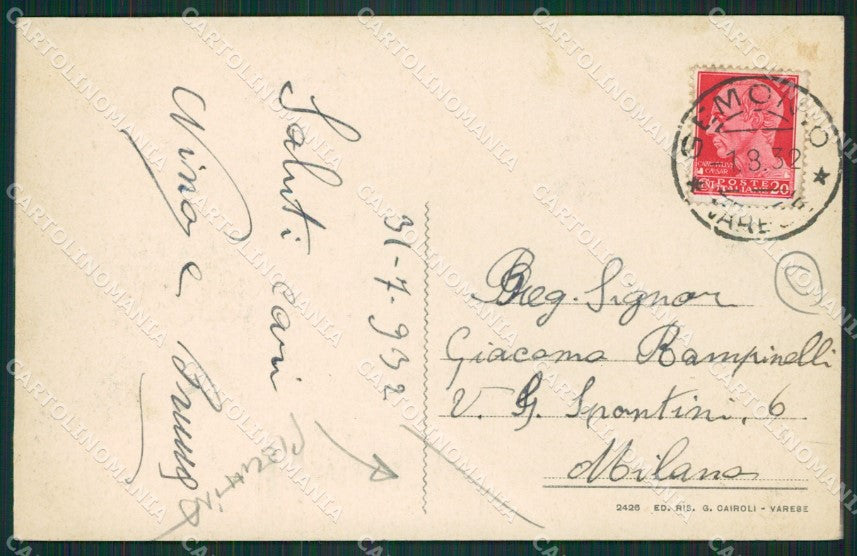 Saluti cari
Nina e Bruno
31-7-932
SEMONIO
1.8.32
VARESE
POSTE
ITALIANE
CENT. 20
Preg. Signor
Giacomo Rampinelli
V. G. Spontini, 6
Milano
2426 ED. RIS. G. CAIROLI - VARESE
CARTOLINOMANIA